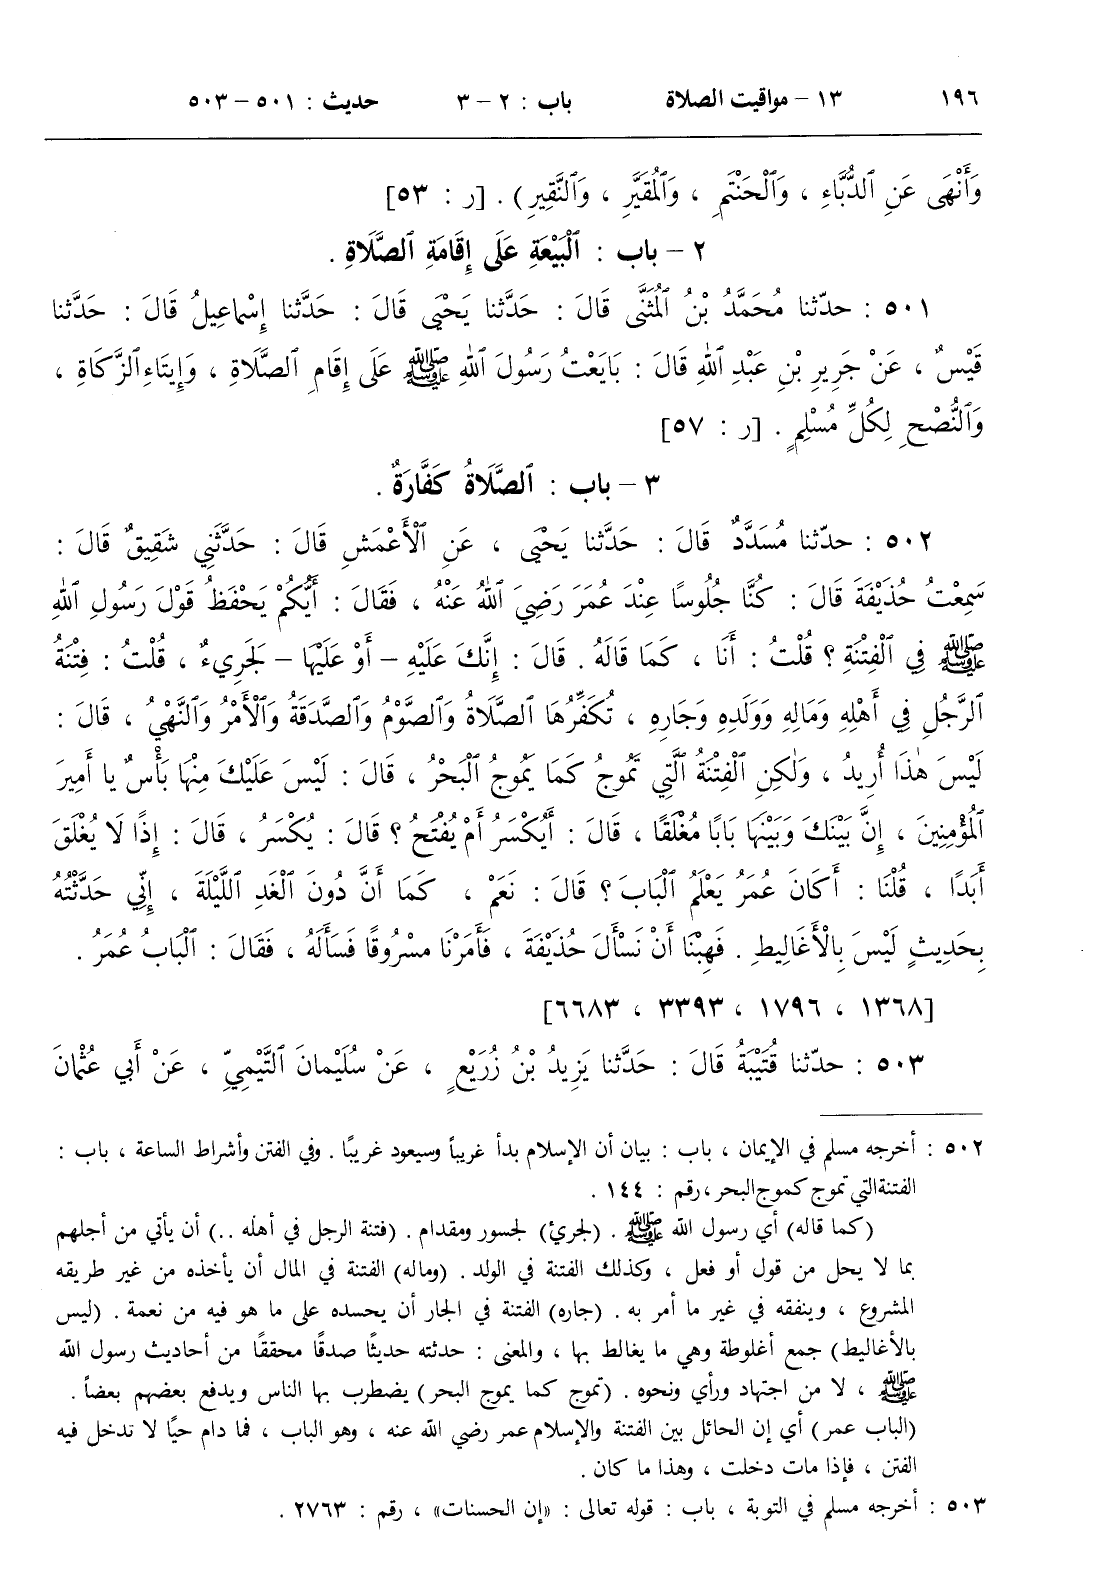 ١٩٦ ١٣ – مواقيت الصلاة باب : ٢ – ٣ حديث : ٥٠١ – ٥٠٣
وَأَنْهَى عَنِ ٱلدُّبَّاءِ ، وَٱلْحَنْتَمِ ، وَٱلْمُقَيَّرِ ، وَٱلنَّقِيرِ) . [ر : ٥٣]
٢ – باب : ٱلْبَيْعَةِ عَلَى إِقَامَةِ ٱلصَّلَاةِ .
٥٠١ : حدّثنا مُحَمَّدُ بْنُ ٱلْمُثَنَّى قَالَ : حَدَّثنا يَحْيَى قَالَ : حَدَّثنا إِسْماعِيلُ قَالَ : حَدَّثنا
قَيْسٌ ، عَنْ جَرِيرِ بْنِ عَبْدِ ٱللهِ قَالَ : بَايَعْتُ رَسُولَ ٱللهِ ﷺ عَلَى إِقَامِ ٱلصَّلَاةِ ، وَإِيتَاءِ ٱلزَّكَاةِ ،
وَٱلنُّصْحِ لِكُلِّ مُسْلِمٍ . [ر : ٥٧]
٣ – باب : ٱلصَّلَاةُ كَفَّارَةٌ .
٥٠٢ : حدّثنا مُسَدَّدٌ قَالَ : حَدَّثنا يَحْيَى ، عَنِ ٱلْأَعْمَشِ قَالَ : حَدَّثَنِي شَقِيقٌ قَالَ :
سَمِعْتُ حُذَيْفَةَ قَالَ : كُنَّا جُلُوسًا عِنْدَ عُمَرَ رَضِيَ ٱللهُ عَنْهُ ، فَقَالَ : أَيُّكُمْ يَحْفَظُ قَوْلَ رَسُولِ ٱللهِ
ﷺ فِي ٱلْفِتْنَةِ ؟ قُلْتُ : أَنَا ، كَمَا قَالَهُ . قَالَ : إِنَّكَ عَلَيْهِ – أَوْ عَلَيْهَا – لَجَرِيءٌ ، قُلْتُ : فِتْنَةُ
ٱلرَّجُلِ فِي أَهْلِهِ وَمَالِهِ وَوَلَدِهِ وَجَارِهِ ، تُكَفِّرُهَا ٱلصَّلَاةُ وَٱلصَّوْمُ وَٱلصَّدَقَةُ وَٱلْأَمْرُ وَٱلنَّهْيُ ، قَالَ :
لَيْسَ هٰذَا أُرِيدُ ، وَلٰكِنِ ٱلْفِتْنَةُ ٱلَّتِي تَمُوجُ كَمَا يَمُوجُ ٱلْبَحْرُ ، قَالَ : لَيْسَ عَلَيْكَ مِنْهَا بَأْسٌ يا أَمِيرَ
ٱلْمُؤْمِنِينَ ، إِنَّ بَيْنَكَ وَبَيْنَهَا بَابًا مُغْلَقًا ، قَالَ : أَيُكْسَرُ أَمْ يُفْتَحُ ؟ قَالَ : يُكْسَرُ ، قَالَ : إِذًا لَا يُغْلَقَ
أَبَدًا ، قُلْنَا : أَكَانَ عُمَرُ يَعْلَمُ ٱلْبَابَ ؟ قَالَ : نَعَمْ ، كَمَا أَنَّ دُونَ ٱلْغَدِ ٱللَّيْلَةَ ، إِنِّي حَدَّثْتُهُ
بِحَدِيثٍ لَيْسَ بِالْأَغَالِيطِ . فَهِبْنَا أَنْ نَسْأَلَ حُذَيْفَةَ ، فَأَمَرْنَا مسْرُوقًا فَسَأَلَهُ ، فَقَالَ : ٱلْبَابُ عُمَرُ .
[١٣٦٨ ، ١٧٩٦ ، ٣٣٩٣ ، ٦٦٨٣]
٥٠٣ : حدّثنا قُتَيْبَةُ قَالَ : حَدَّثنا يَزِيدُ بْنُ زُرَيْعٍ ، عَنْ سُلَيْمانَ ٱلتَّيْمِيِّ ، عَنْ أَبِي عُثْمَانَ
٥٠٢ : أخرجه مسلم في الإيمان ، باب : بيان أن الإسلام بدأ غريباً وسيعود غريبًا . وفي الفتن وأشراط الساعة ، باب :
الفتنة التي تموج كموج البحر ، رقم : ١٤٤ .
(كما قاله) أي رسول الله ﷺ . (لجريّ) لجسور ومقدام . (فتنة الرجل في أهله ..) أن يأتي من أجلهم
بما لا يحل من قول أو فعل ، وكذلك الفتنة في الولد . (وماله) الفتنة في المال أن يأخذه من غير طريقه
المشروع ، وينفقه في غير ما أمر به . (جاره) الفتنة في الجار أن يحسده على ما هو فيه من نعمة . (ليس
بالأغاليط) جمع أغلوطة وهي ما يغالط بها ، والمعنى : حدثته حديثًا صدقًا محققًا من أحاديث رسول الله
ﷺ ، لا من اجتهاد ورأي ونحوه . (تموج كما يموج البحر) يضطرب بها الناس ويدفع بعضهم بعضاً .
(الباب عمر) أي إن الحائل بين الفتنة والإسلام عمر رضي الله عنه ، وهو الباب ، فما دام حيًا لا تدخل فيه
الفتن ، فإذا مات دخلت ، وهذا ما كان .
٥٠٣ : أخرجه مسلم في التوبة ، باب : قوله تعالى : «إن الحسنات» ، رقم : ٢٧٦٣ .